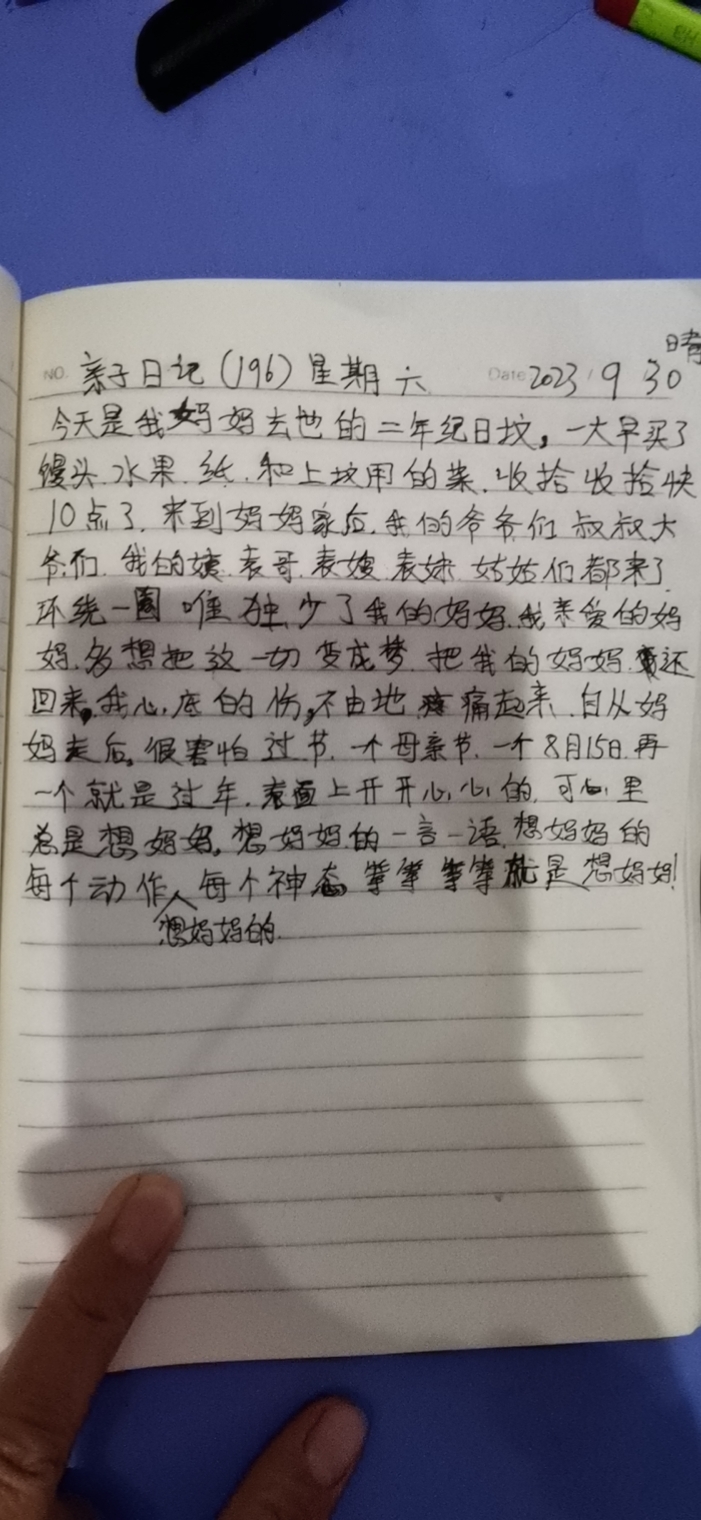 晴
NO. 亲子日记(196) 星期六 Date 2023 / 9 30
今天是我妈妈去世的二年纪日坟,一大早买了
馒头.水果.纸.和上坟用的菜.收拾收拾快
10点了.来到妈妈家后.我的爷爷们叔叔大
爷们.我的姨.表哥.表嫂.表妹.姑姑们都来了.
环绕一圈唯独少了我的妈妈.我亲爱的妈
妈.多想把这一切变成梦.把我的妈妈还
回来,我心底的伤,不由地疼痛起来.自从妈
妈走后,很害怕过节.一个母亲节.一个8月15日.再
一个就是过年.表面上开开心心的.可心里
总是想妈妈,想妈妈的一言一语.想妈妈的
每个动作 每个神态 等等 等等就是想妈妈!
想妈妈的.